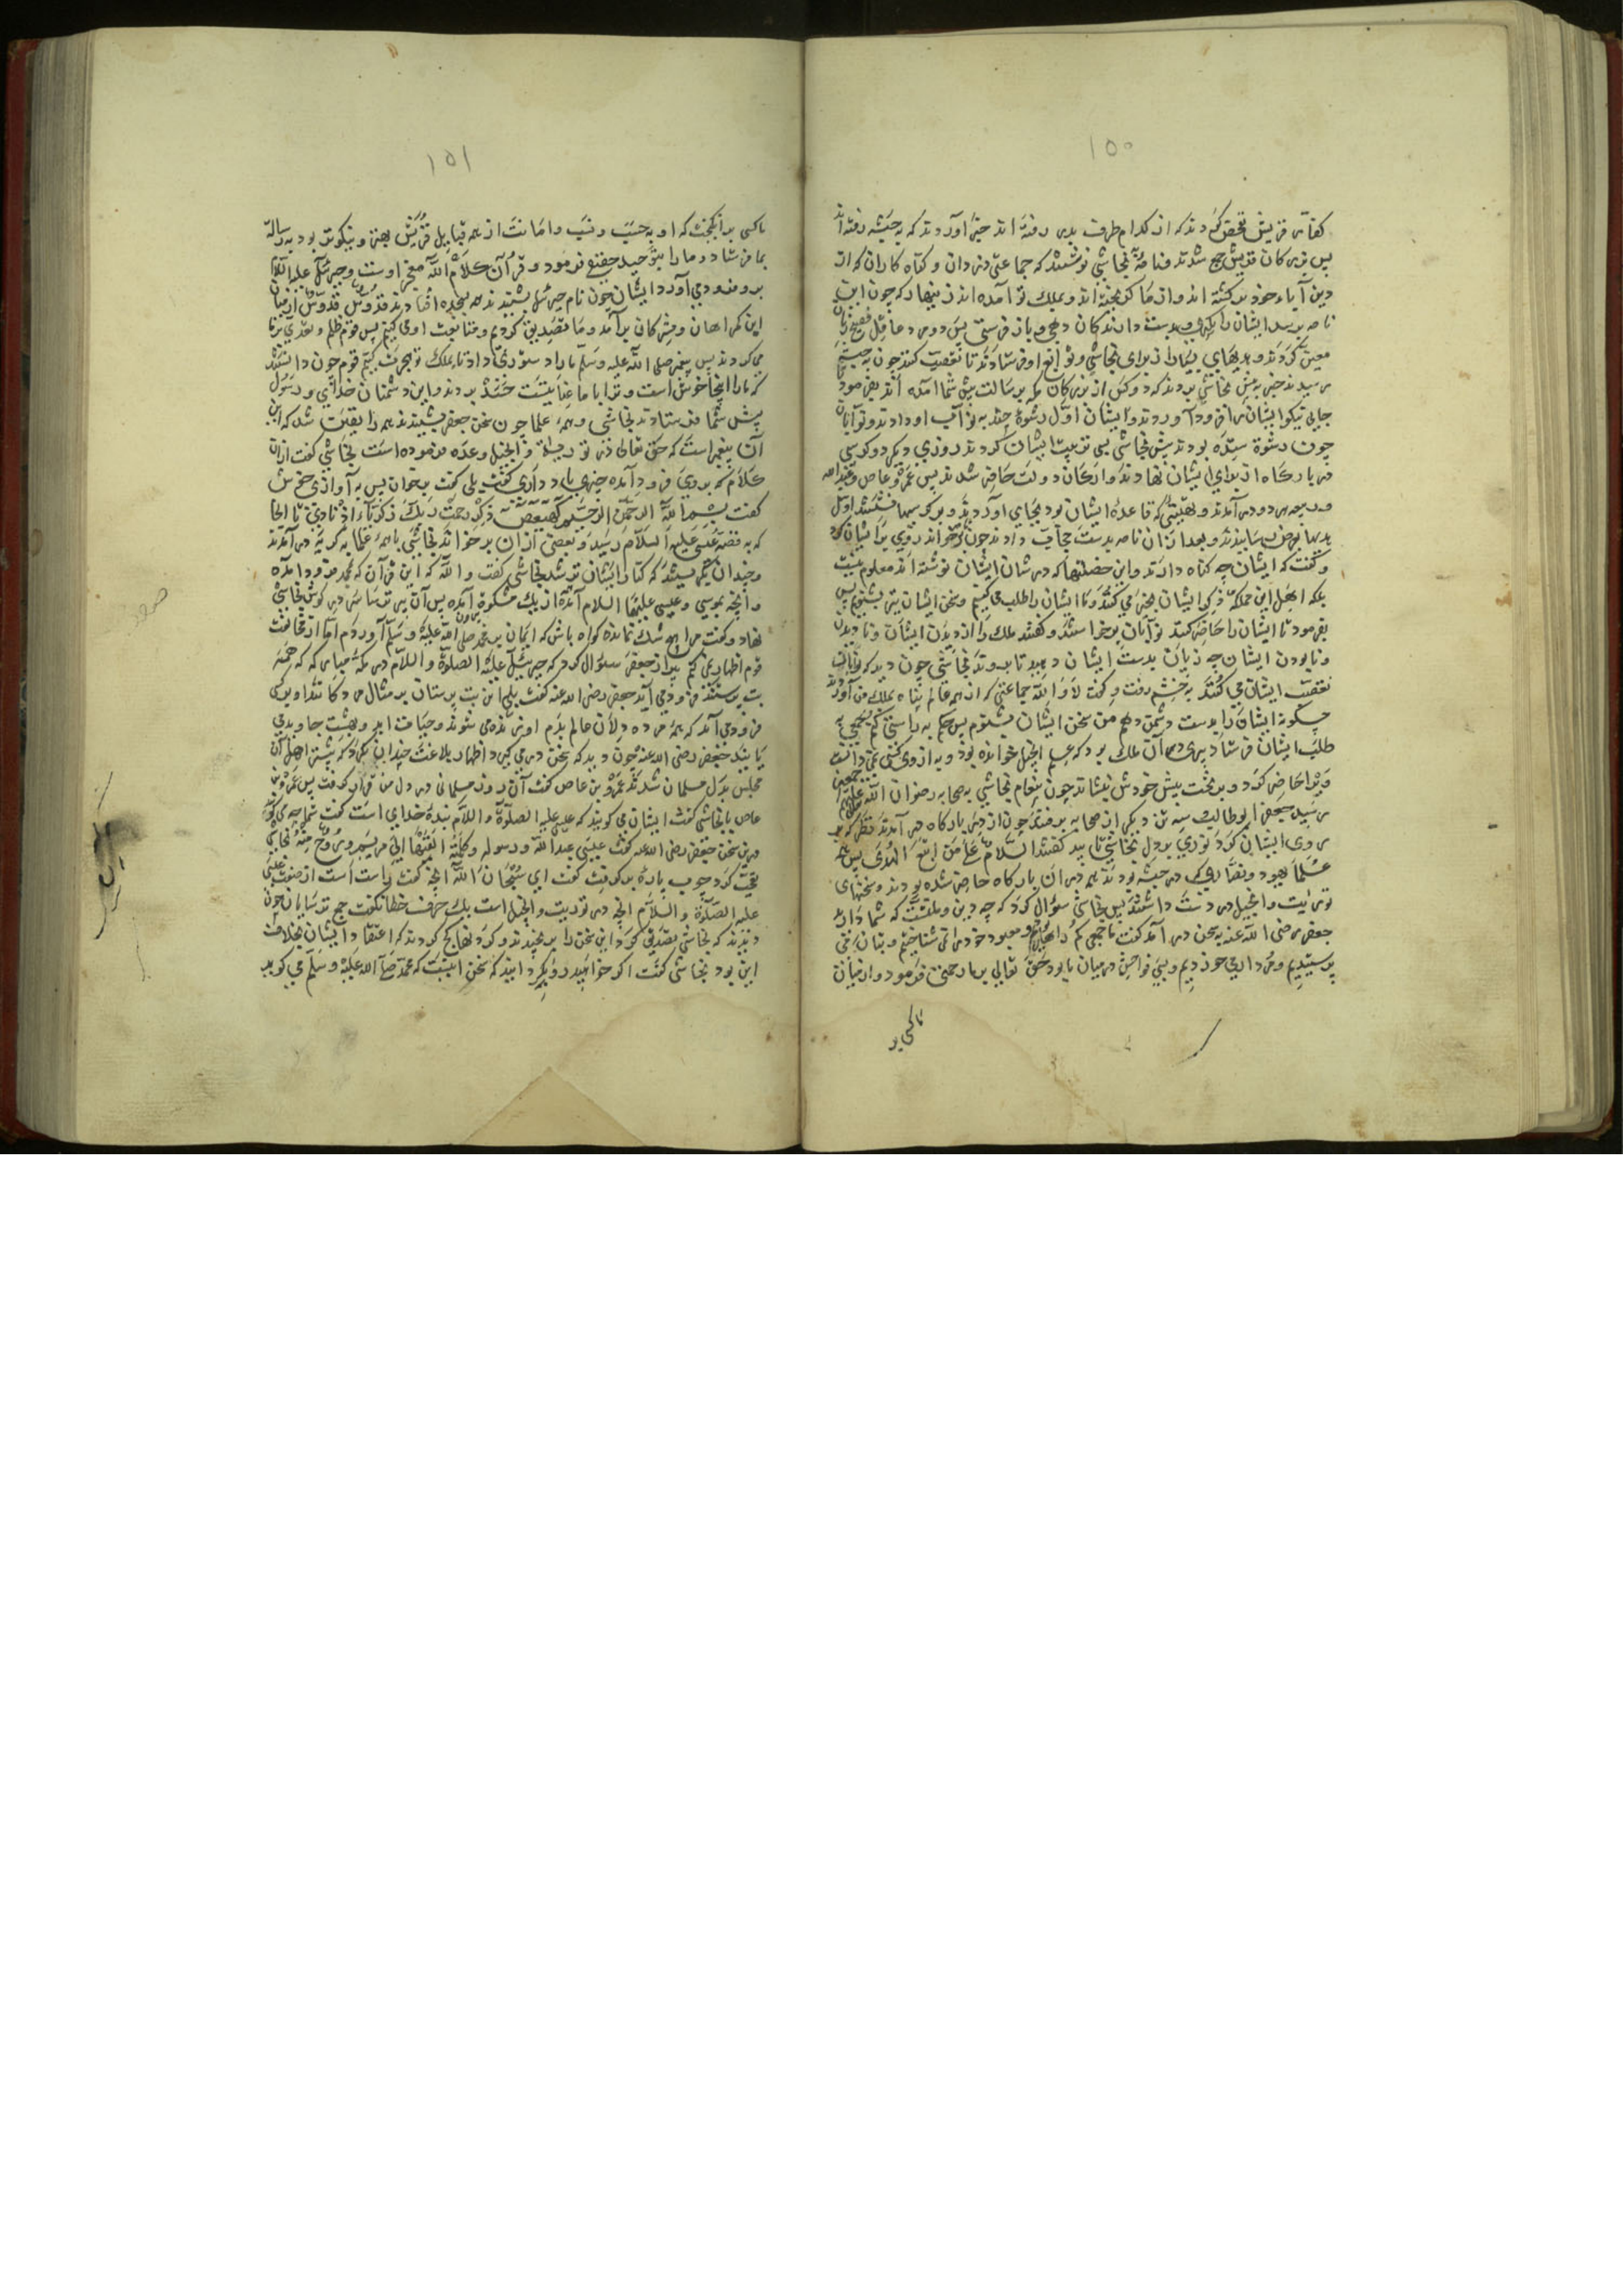 ١٥٠
كفار قريش تفحص كردند كه از كدام طرف بدر رفته اند خبر آوردند كه به حبشه رفته اند
پس بزركان قريش جمع شدند و نامۀ بنجاشي نوشتند كه جماعتي دزدان و كناه كاران كه از
دين آباء خود بركشته اند و از ما كريخته اند و بملك تو آمده اند زينهار كه چون اين
نامه برسد ايشان را بكيري و بدست دارندكان دهي و باز فرستي پس دو مرد عاقل فصيح زبان
معين كردند و هديهاي بسيار از براي نجاشي و توابع او فرستادند تا تعصب كنند چون به حبشه
رسيدند خبر به پيش نجاشي بردند كه دو كس از بزركان مكه برسالت پيش شما آمده اند بفرمود تا
جايي نيكو ايشان را فرود آوردند و ايشان اول رشوۀ چند به نواب او دادند و نوابان
چون رشوة ستده بودند پيش نجاشي بسي تربيت ايشان كردند روزي ديكر دو كرسي
در باركاه از براي ايشان نهادند و اركان دولت حاضر شدند پس عمرو عاص و عبدالله
و ربيعه هر دو در آمدند و بهيئتي كه قاعدۀ ايشان بود بجاي آوردند و بر كرسيها نشستند اول
هديها بعرض رسانيدند و بعد از آن نامه بدست حاجب دادند چون برخواند روي بر ايشان كرد
و كفت كه ايشان چه كناه دارند و اين خصلتها كه در شان ايشان نوشته اند معلوم نيست
بلكه اهل اين مملكه ذكر ايشان بخير مي كنند و ما ايشان را طلب مي كنيم و سخن ايشان نيز بشنويم پس
بفرمود تا ايشان را حاضر كنند نوابان برخواستند و كفتند ملك را از ديدن ايشان و ناديدن
و نابودن ايشان چه زيان بدست ايشان دهيد تا ببرند نجاشي چون ديد كه نوابان
تعصب ايشان مي كنند به خشم رفت و كفت لا والله جماعتي كه از همه عالم پناه بملك من آوردند
چكونه ايشان را بدست دشمن دهم من سخن ايشان بشنوم پس حكم به راستي كنم شخصي به
طلب ايشان فرستاد پيري در آن ملك بود كه علم انجيل خوانده بود و به از وي كسي نمي دانست
ويرا حاضر كرد و بر تخت پيش خودش بنشاند چون پيغام نجاشي به صحابه رضوان الله عليهم
رسيد جعفر ابوطالب سه تن ديكر از صحابه برفتند چون از در باركاه در آمدند نظر كه بر
روي ايشان كرد نوري بر دل نجاشي تابيد كفتند السلام على من اتبع الهدى پس همه
علماء يهود و نصاري كه در حبشه بودند همه در آن باركاه حاضر شده بودند و نسختهاي
توريت و انجيل در دست داشتند پس نجاشي سؤال كرد كه چه دين و ملتست كه شما داريد
جعفر رضى الله عنه به سخن در آمد كفت ما جمعي كمراهان بوديم و معبود خود را نمي شناختيم و بتان مي
پرستيديم و مردار مي خورديم و بسي فواحش در ميان ما بود حق تعالي بر ما رحمتي فرمود و از ميان
ما كسي بر
١٥١
ما كسي بر انكيخت كه او به حسب و نسب و امانت از همه قبايل قريش بهتر و نيكوتر بود به رسالة
بما فرستاد و ما را بتوحيد حقتع فرمود و قرآن كلام الله معجز اوست و جبرئيل عليه السلام
برو فرود مي آورد ايشان چون نام جبرئيل بشنيدند همه بسجده افتادند قدوس قدوس از ميان
اين كمراهان و مشركان برآمد و ما تصديق كرديم و متابعت او مي كنيم پس قوم ظلم و تعدي بر ما
مي كردند پس پيغمبر صلى الله عليه و سلم ما را دستوري داد تا بملك تو هجرت كنيم قوم چون دانستند
كه ما را اينجا خوش است و ترا با ما عنايتست حسد بردند و اين دشمنان خداي و رسول
پيش شما فرستادند نجاشي و همۀ علما چون سخن جعفر بشنيدند همه را يقين شد كه اين
آن پيغمبر است كه حق تعالى در توريت و انجيل وعده فرموده است نجاشي كفت ازان
كلام كه بر وي فرود آمده چيزي ياد داري كفت بلي كفت بخوان پس به آوازي خوش
كفت بسم الله الرحمن الرحيم كهيعص ذكر رحمت ربك عبده زكريا اذ نادى تا آنجا
كه به قصۀ عيسى عليه السلام رسيد و بعضي ازان برخواند نجاشي با همۀ علما به كريه در آمدند
و چندان بكريستند كه كتابهاي ايشان تر شد نجاشي كفت والله كه اين قرآن كه بمحمد فرود آمده
و آنچه بموسى و عيسى عليهما السلام آمده از يك مشكوة بيرون آمده پس آن پير ترسا سر در كوش نجاشي
نهاد و كفت مرا هيچ شك نمانده كواه باش كه ايمان بر محمد صلى الله عليه و سلم آوردم اما از مخالفت
قوم اظهار نمي كنم بعد از جعفر سؤال كرد كه جبرئيل عليه الصلوة و السلام در مكۀ مبارك كه همه
بت پرستند فرود مي آيد جعفر رضى الله عنه كفت بلي اين بت پرستان بر مثال مردكانند او بر كه
فرود مي آمد كه همۀ مرده دلان عالم بدم او زنده مي شوند و حيات ابد و بهشت جاويد مي
يابند جعفر رضى الله عنه چون ديد كه سخن در مي كيرد اظهار بلاغت چندان بكرد كه بيشتر اهل آن
مجلس بدل مسلمان شدند عمرو بن عاص كفت آن روز مسلماني در دل من قرار كرفت پس عمرو بن
عاص با نجاشي كفت ايشان مي كويند كه عيسى عليه الصلوة و السلام بندۀ خداي است كفت شما چه مي كوييد
درين سخن جعفر رضى الله عنه كفت عيسى عبد الله و رسوله و كلمة القاها الى مريم و روح منه نجاشي
تعجب كرد چوب پارۀ بر كرفت كفت اي سبحان الله آنچه كفت راست است از صفت عيسى
عليه الصلوة و السلام آنچه در توريت و انجيل است يك حرف خطا نكفت جمع ترسايان چون
ديدند كه نجاشي تصديق كرد اين سخن را برنجيدند و كردنها كج كردند كه اعتقاد ايشان بخلاف
اين بود نجاشي كفت اكر خواهيد و اكر نخواهيد كه سخن اينست كه محمد صلى الله عليه و سلم مي كويد